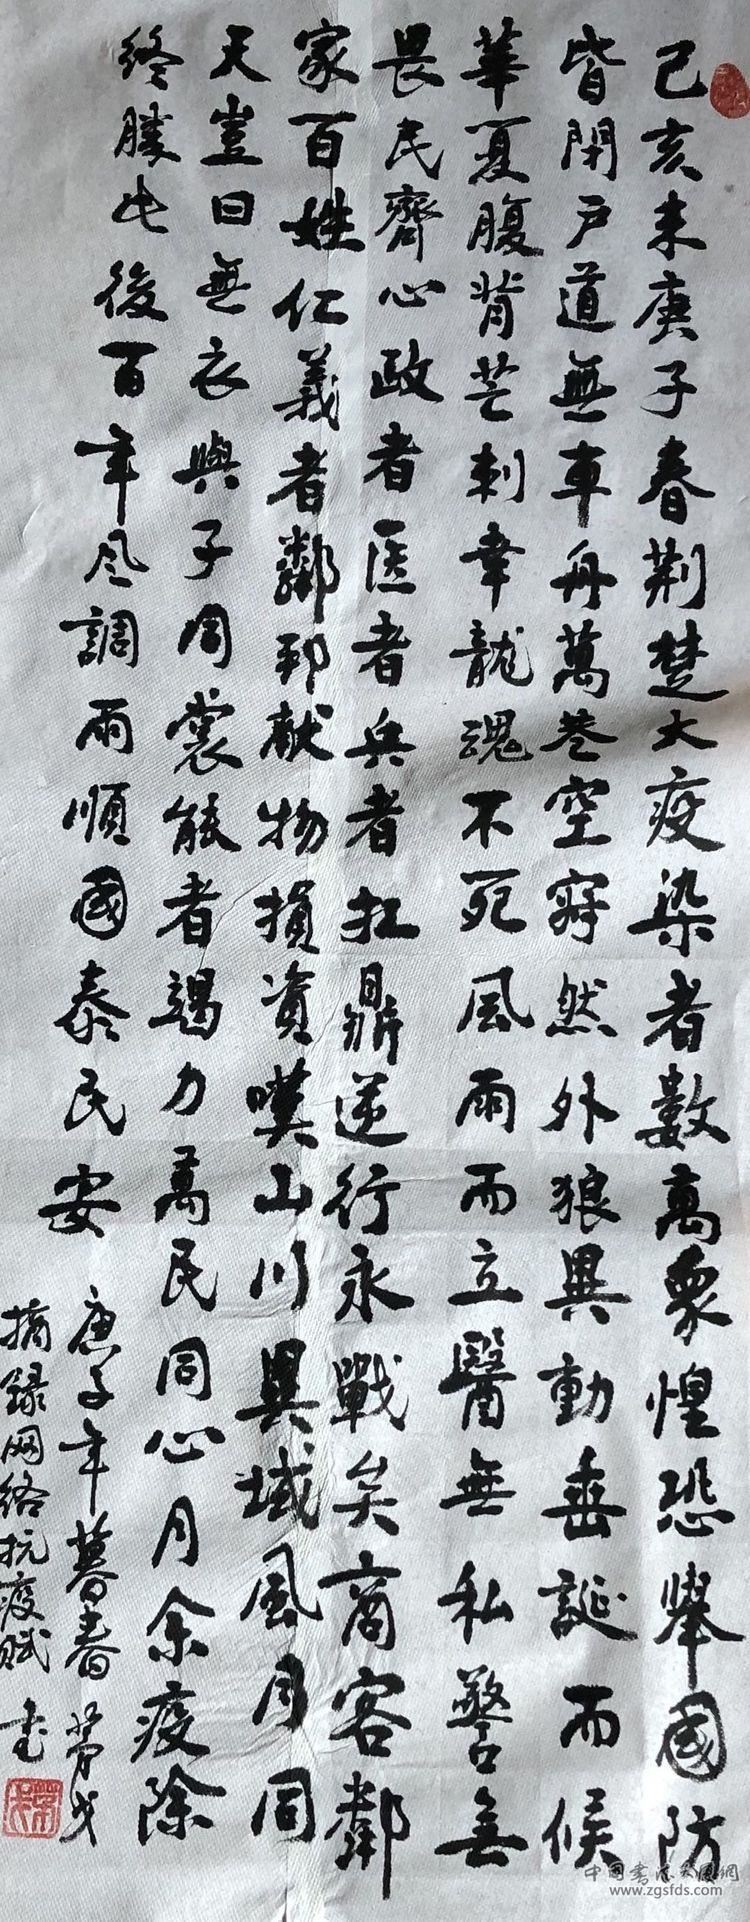 己亥末庚子春荆楚大疫染者數萬象惶恐舉國防
皆閉户道無車舟萬巷空寂然外狼異動垂誕而候
華夏腹背芒刺幸龍魂不死風雨而立醫無私警無
畏民齊心政者医者兵者扛鼎逆行永戰矣商客鄰
家百姓仁義者鄰邦献物損資嘆山川異域風月同
天豈曰無衣與子同裳能者竭力萬民同心月余疫除
終勝此後百年风調雨順國泰民安
庚子年暮春
摘録网络抗疫赋 书
中国书法家园網
www.zgsfds.com